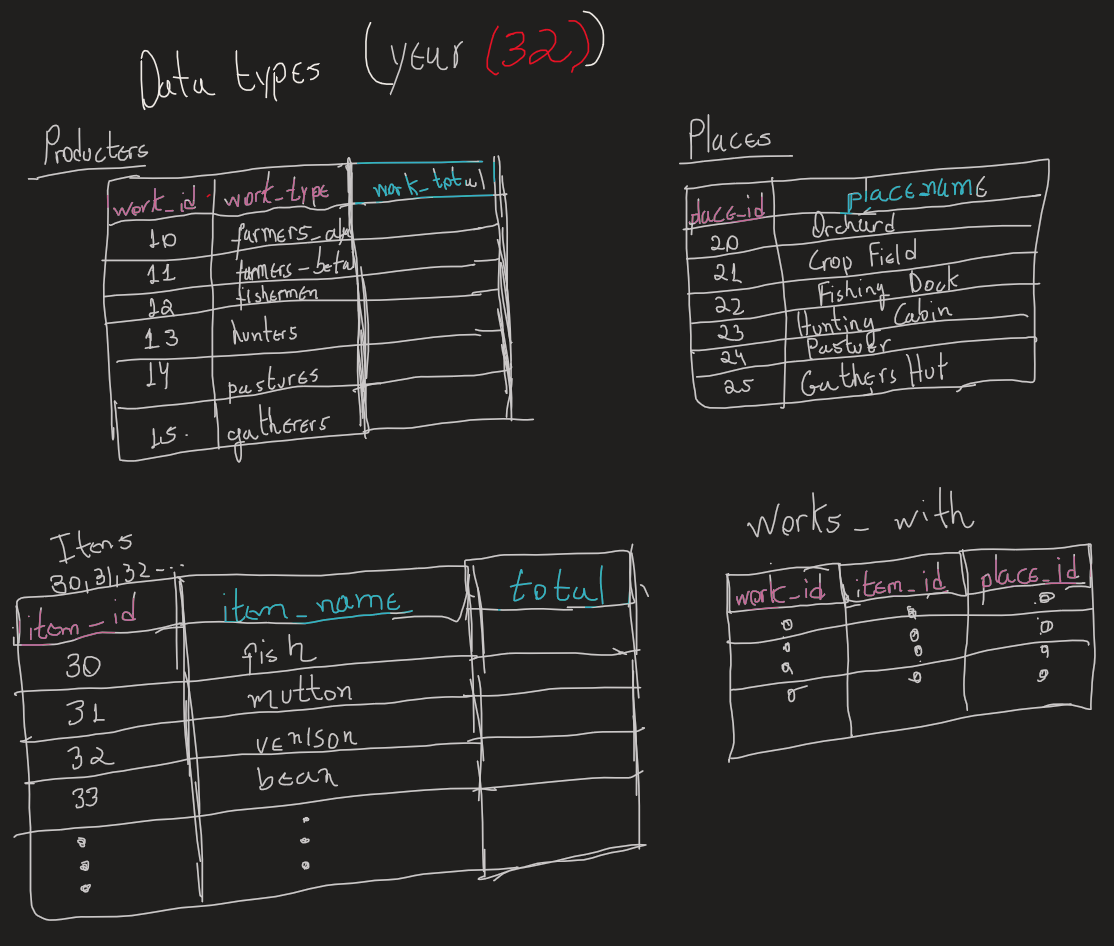 Data types (year (32))
Producters
work_id work_type work_total
10 farmers_alp
11 farmers-beta
12 fishermen
13 hunters
14 pastures
15. gatherers
Places
place_id placename
20 Orchard
21 Crop Field
22 Fishing Dock
23 Hunting Cabin
24 Pastuer
25 Gathers Hut
Items
30,31,32-...
item_id item_name total
30 fish
31 mutton
32 venison
33 bean
Works_with
work_id item_id place_id